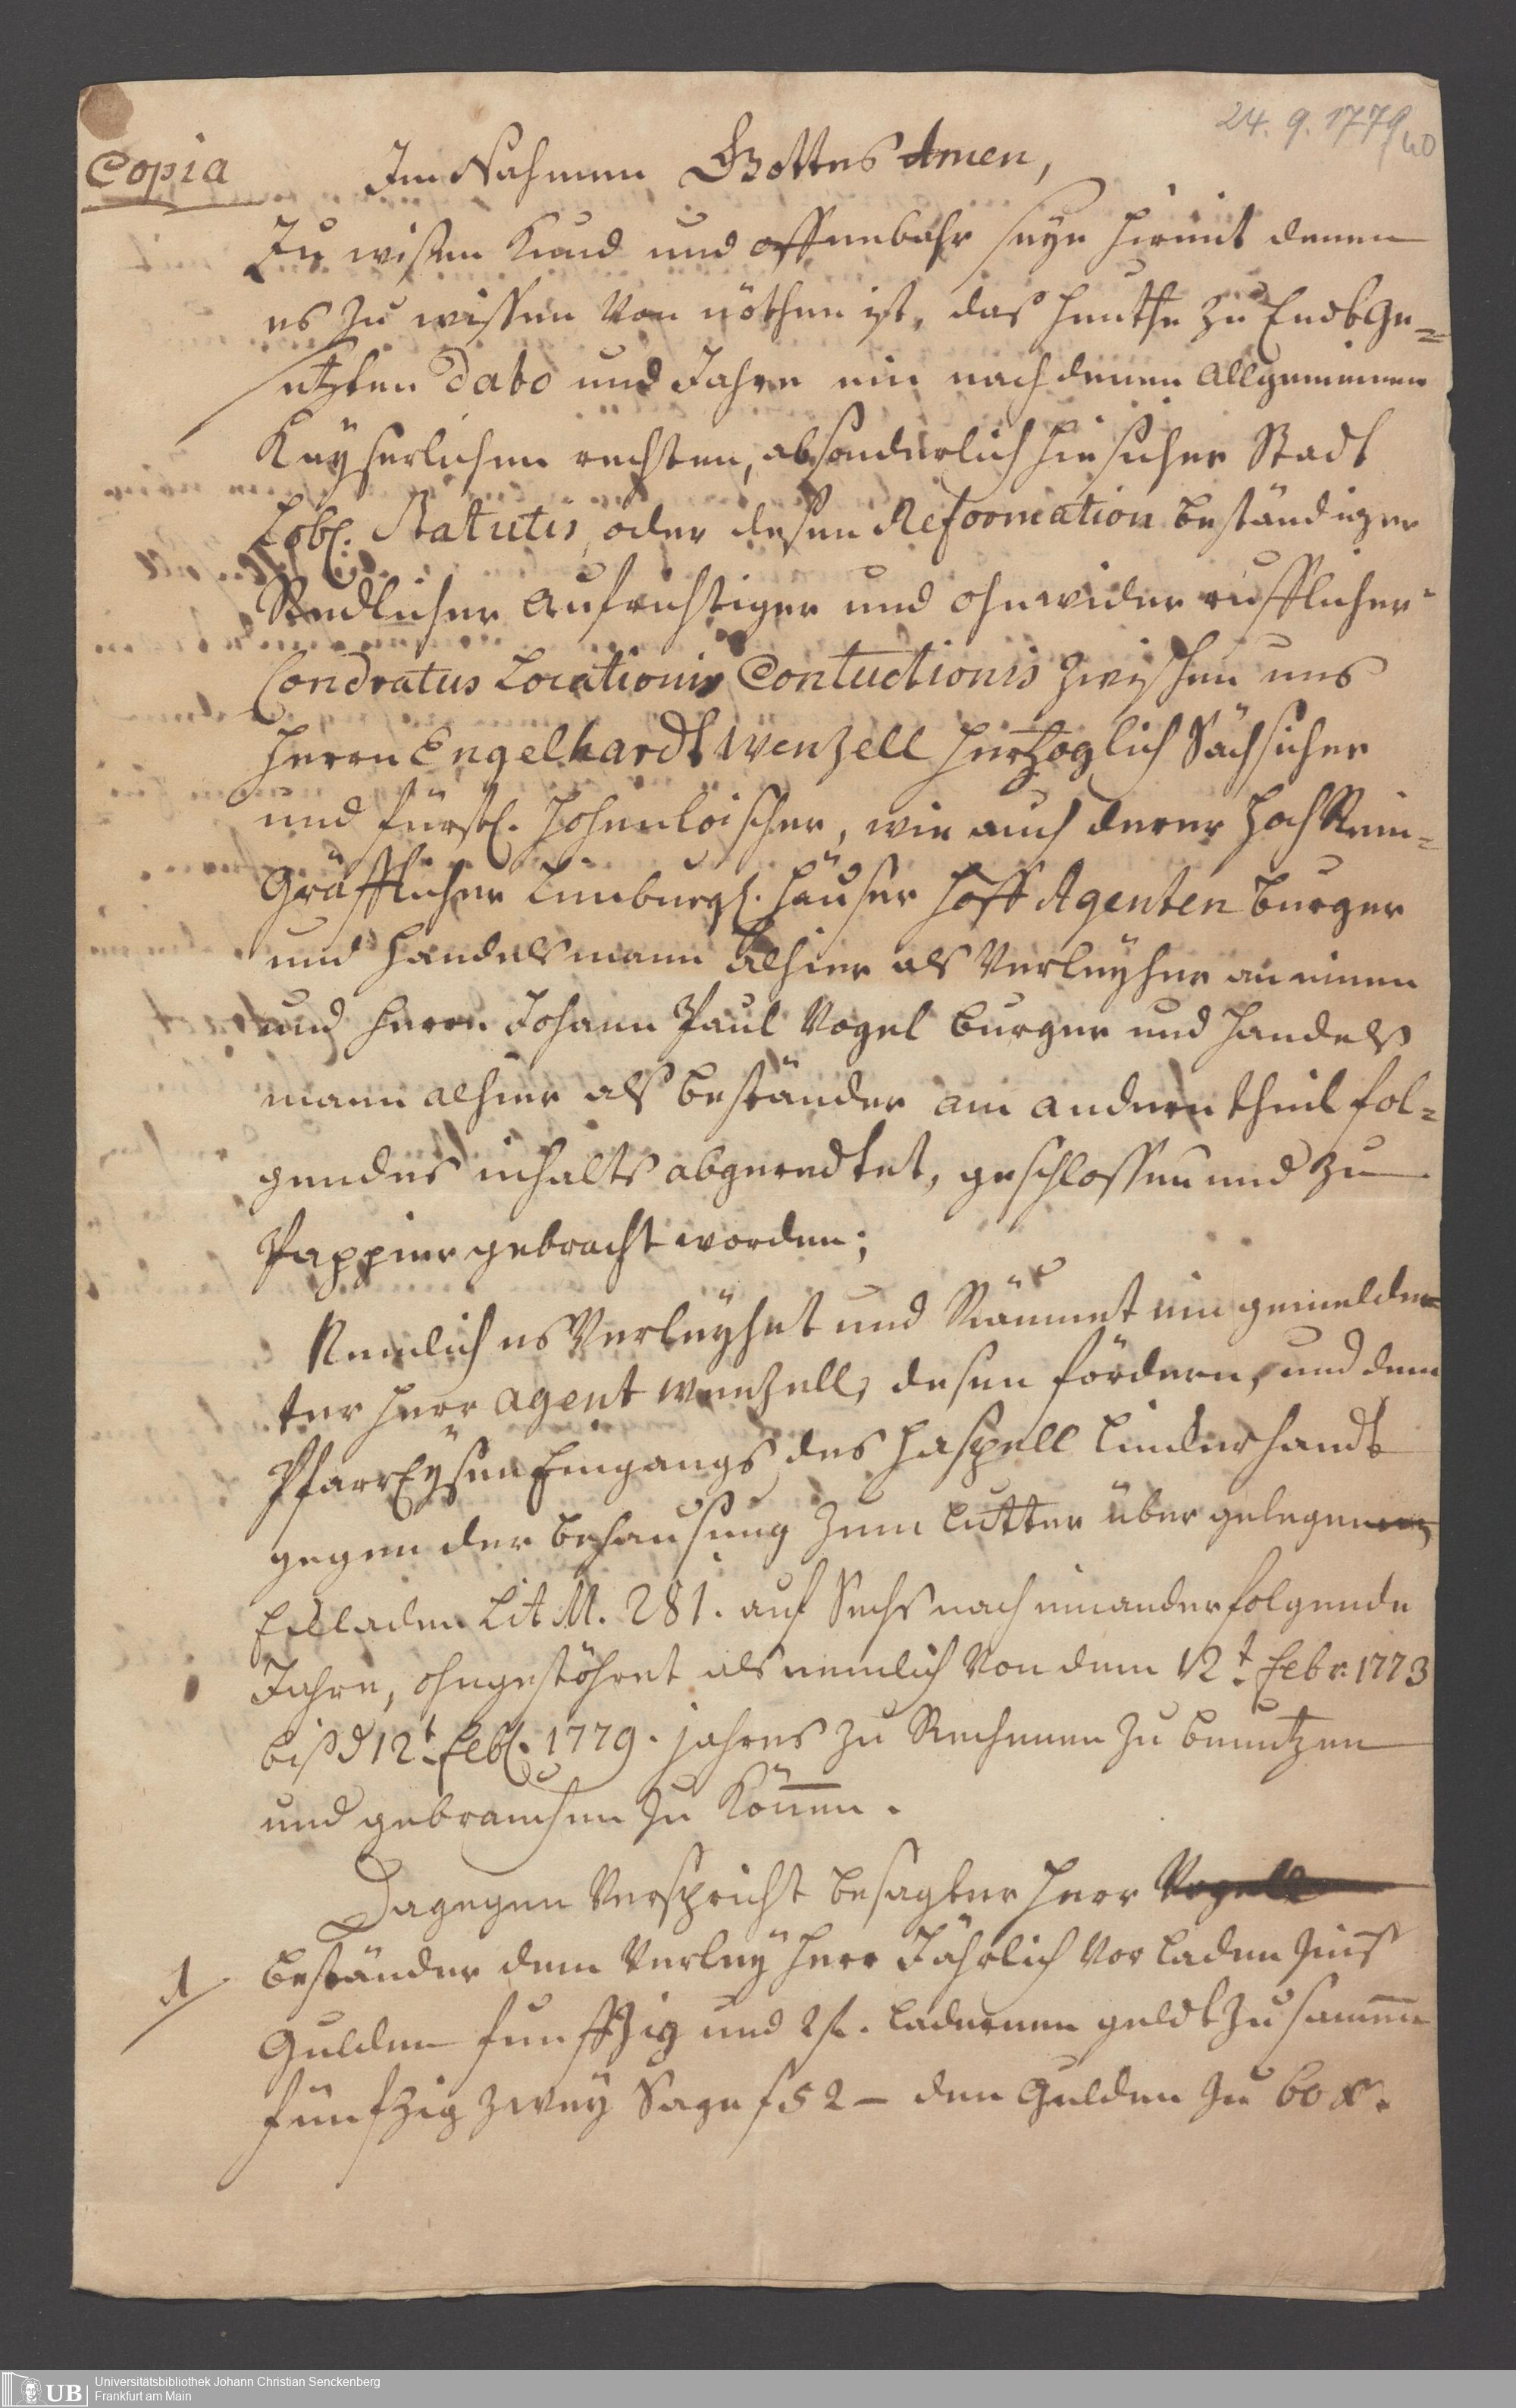 24. 9. 1779
40
Copia
Im Nahmen Gottes Amen,
Zu wißen Kund und offenbahr seye hiermit denen
es zu wissen Von nöthen ist, das heuthe zu Endsge=
setzten Dato und Jahre ein nach denen Allgemeinen
Kayserlichen rechten, absonderlich hiesicher Stadt
Löbl. Statutis, oder desen Reformation beständiger
Redlicher Aufrichtiger und ohnwider rufflicher
Condratus Locationis Contuctionis zwischen uns
Herrn Engelhardt Wenzell Hertzoglich Sächsicher
und fürstl. Hohenloischer, wie auch derer Hoch Rein=
Gräfflicher Limburgl. Häußer Hoff Agenten burger
und Handelsmann alhier als Verleyher an einen
und Herrn Johann Paul Vogel burger und Handels
mann alhier als beständer am andern theil fol=
gendes inhalts abgeredtet, geschlossen und zu
Pappier gebracht worden;
Nemlich es Verleyhet und Räumet ein gemeldter
ter Herr Agent Wenzell, desen fördern, und dem
PfarrEysen Eingangs des Haspell linderhandt
gegen der behaußung zum Lutter über gelegenen
Eckladen Lit M. 281. auf Sechs nach einander folgende
Jahre, ohngestöhret als nemlich Von dem 12t Febr: 1773
biß d 12t Febl. 1779. jahres zu Rechnen zu benutzen
und gebrauchen zu Können.
Dagegen Verspricht besagter Herr Vogell
1 beständer dem Verley Herr Jährlich Vor laden Zins
Gulden funffzig und 2 f. ladernen geldt zusammen
funfzig zwey Sage f 52 – den Gulden zu 60 x.
UB Universitätsbibliothek Johann Christian Senckenberg
Frankfurt am Main